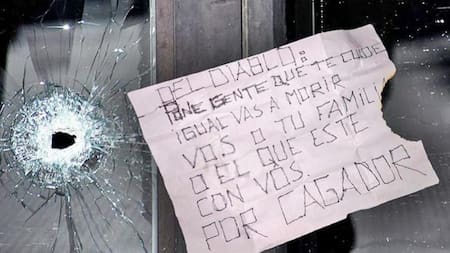 DEL DIABLO:
PONE GENTE QUE TE CUIDE
IGUAL VAS A MORIR
VOS O TU FAMILI
O EL QUE ESTE
CON VOS.
POR CAGADOR